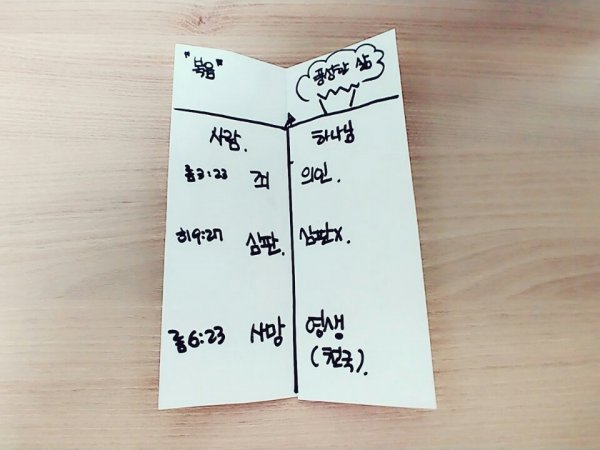 "복음"
풍성한 삶
사람. 하나님
롬3:23 죄 의인.
히9:27 심판. 심판x.
롬6:23 사망 영생
(천국).